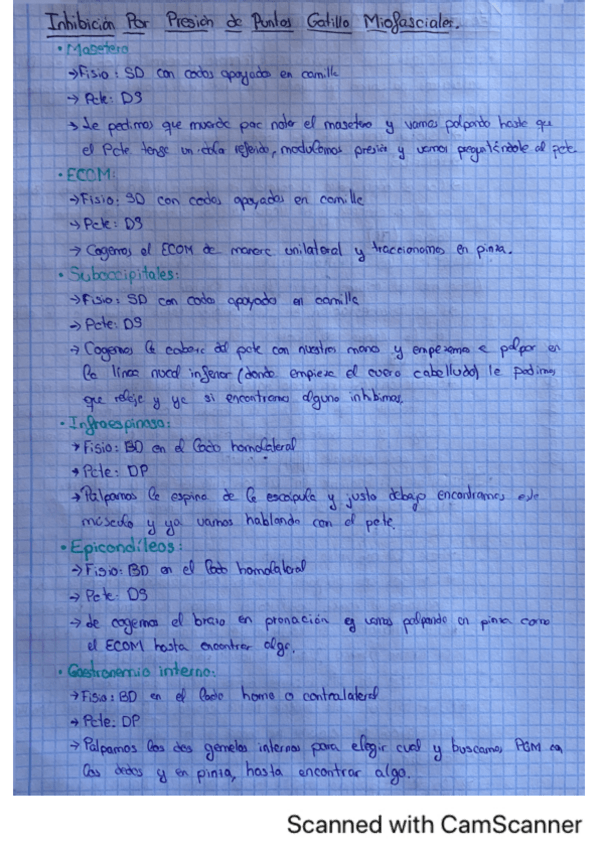 Inhibición Por Presión de Puntos Gatillo Miofasciales.
• Masetero
→ Fisio: SD con codos apoyados en camilla
→ Pcte: DS
→ Le pedimos que muerda para notar el masetero y vamos palpando hasta que
el Pcte tenga un dolor referido, modulamos presión y vamos preguntándole al pcte.
• ECOM:
→ Fisio: SD con codos apoyados en camilla
→ Pcte: DS
→ Cogemos el ECOM de manera unilateral y traccionamos en pinza.
• Suboccipitales:
→ Fisio: SD con codos apoyados en camilla
→ Pcte: DS
→ Cogemos la cabeza del pcte con nuestras manos y empezamos a palpar en
la línea nucal inferior (donde empieza el cuero cabelludo) le pedimos
que relaje y ya si encontramos alguno inhibimos.
• Infraespinoso:
→ Fisio: BD en el lado homolateral
→ Pcte: DP
→ Palpamos la espina de la escápula y justo debajo encontramos este
músculo y ya vamos hablando con el pcte.
• Epicondíleos:
→ Fisio: BD en el lado homolateral
→ Pcte: DS
→ Le cogemos el brazo en pronación y vamos palpando en pinza como
el ECOM hasta encontrar algo.
• Gastronemio interno:
→ Fisio: BD en el lado homo o contralateral
→ Pcte: DP
→ Palpamos los dos gemelos internos para elegir cual y buscamos PGM con
los dedos y en pinza, hasta encontrar algo.
Scanned with CamScanner